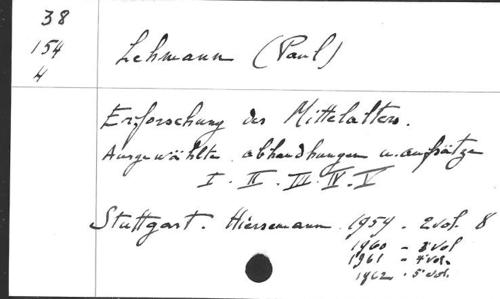 38
154
4
Lehmann (Paul)
Erforschung des Mittelalters.
Ausgewählte abhandlungen u. aufsätze
I. II. III. IV. V
Stuttgart. Hiersemann 1959 - 2 vol. 8
1960 - 3 vol
1961 - 4 vol.
1962 - 5 vol.